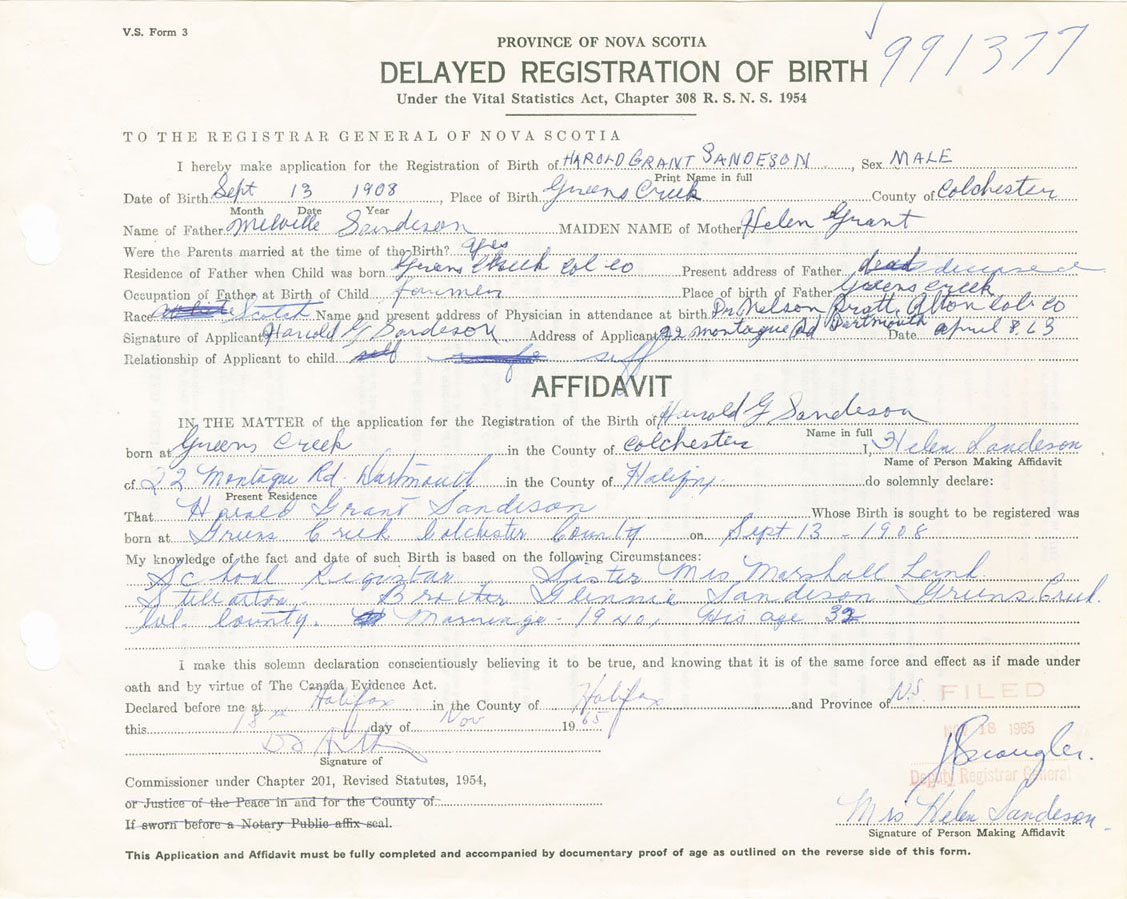 V.S. Form 3
991377
PROVINCE OF NOVA SCOTIA
DELAYED REGISTRATION OF BIRTH
Under the Vital Statistics Act, Chapter 308 R. S. N. S. 1954
TO THE REGISTRAR GENERAL OF NOVA SCOTIA
I hereby make application for the Registration of Birth of HAROLD GRANT SANDESON, Sex MALE
Print Name in full
Date of Birth Sept 13 1908, Place of Birth Greens Creek County of Colchester
Month Date Year
Name of Father Melville Sandeson MAIDEN NAME of Mother Helen Grant
Were the Parents married at the time of the Birth? yes
Residence of Father when Child was born Greens Creek Col Co Present address of Father dead
Occupation of Father at Birth of Child farmer Place of birth of Father Greens Creek
Race white Scotch Name and present address of Physician in attendance at birth Dr Nelson Pratt, Alton Col Co
Signature of Applicant Harold G Sandeson Address of Applicant 22 Montague Rd Dartmouth Date april 8, 63
Relationship of Applicant to child self self
AFFIDAVIT
IN THE MATTER of the application for the Registration of the Birth of Harold G Sandeson
Name in full
born at Greens Creek in the County of Colchester I, Helen Sandeson
Name of Person Making Affidavit
of 22 Montague Rd. Dartmouth in the County of Halifax do solemnly declare:
Present Residence
That Harold Grant Sandeson Whose Birth is sought to be registered was
born at Greens Creek Colchester County on Sept 13 - 1908
My knowledge of the fact and date of such Birth is based on the following Circumstances:
School Registar Sister Mrs Marshall
Stellarton Brother Glennie Sandeson Greens Creek.
Col. County. Marriage - 1940, His age 32
I make this solemn declaration conscientiously believing it to be true, and knowing that it is of the same force and effect as if made under
oath and by virtue of The Canada Evidence Act.
Declared before me at Halifax in the County of Halifax and Province of N.S.
FILED
this 18 day of Nov 1965
NOV 18 1965
Signature of
Deputy Registrar General
Commissioner under Chapter 201, Revised Statutes, 1954,
or Justice of the Peace in and for the County of
Mrs Helen Sandeson
If sworn before a Notary Public affix seal.
Signature of Person Making Affidavit
This Application and Affidavit must be fully completed and accompanied by documentary proof of age as outlined on the reverse side of this form.